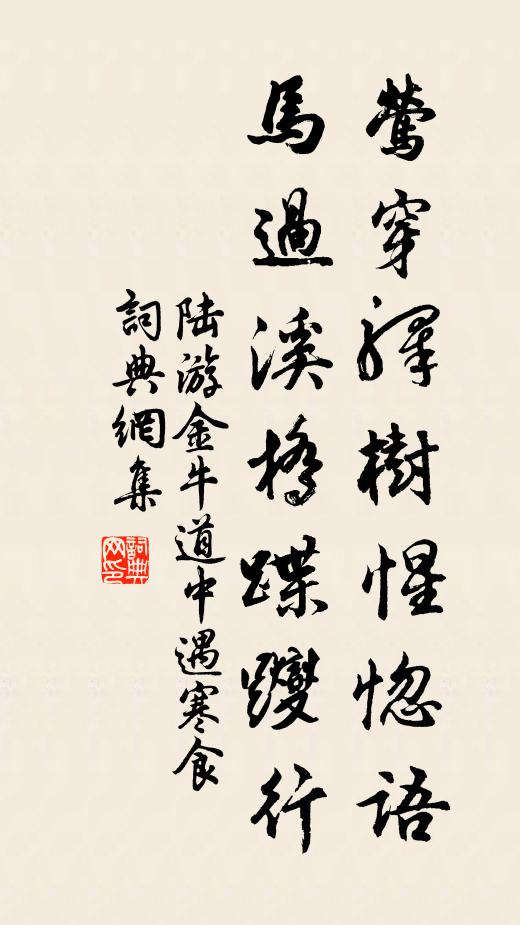 鶯穿驛樹惺惚語
馬過溪橋蹀躞行
陆游金牛道中遇寒食
詞典網集
詞典网印